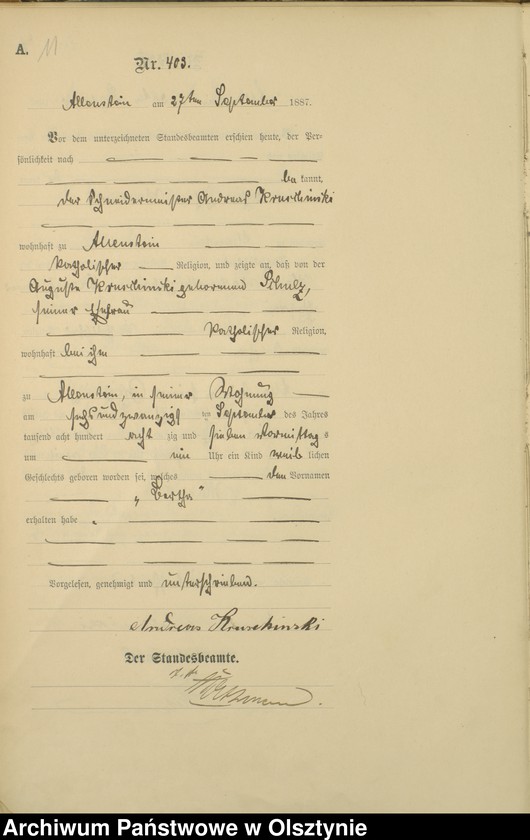 A. 11
Nr. 403.
Allenstein am 27ten September 1887.
Vor dem unterzeichneten Standesbeamten erschien heute, der Per-
sönlichkeit nach
be kannt,
der Schneidermeister Andreas Kruschinski
wohnhaft zu Allenstein
katholischer Religion, und zeigte an, daß von der
Auguste Kruschinski geborenen
seiner Ehefrau
katholischer Religion,
wohnhaft bei ihm
zu Allenstein, in seiner Wohnung
am sechsundzwanzigsten September des Jahres
tausend acht hundert acht zig und sieben Vormittag s
um ein Uhr ein Kind weib lichen
Geschlechts geboren worden sei, welches den Vornamen
„Bertha“
erhalten habe.
Vorgelesen, genehmigt und unterschrieben.
Andreas Kruschinski
Der Standesbeamte.
Archiwum Państwowe w Olsztynie